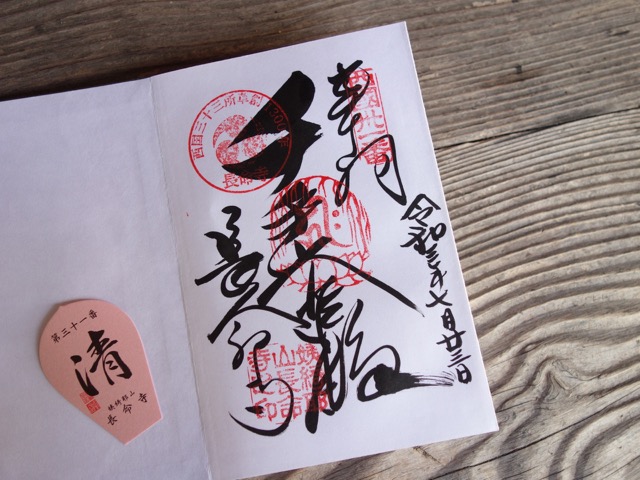 奉拝
西国卅一番
令和三年七月廿三日
西国三十三所草創1300年
長命寺
千手大悲
長命寺
姨綺耶
山長命
寺之印
第三十一番
清
姨綺耶山
長命寺